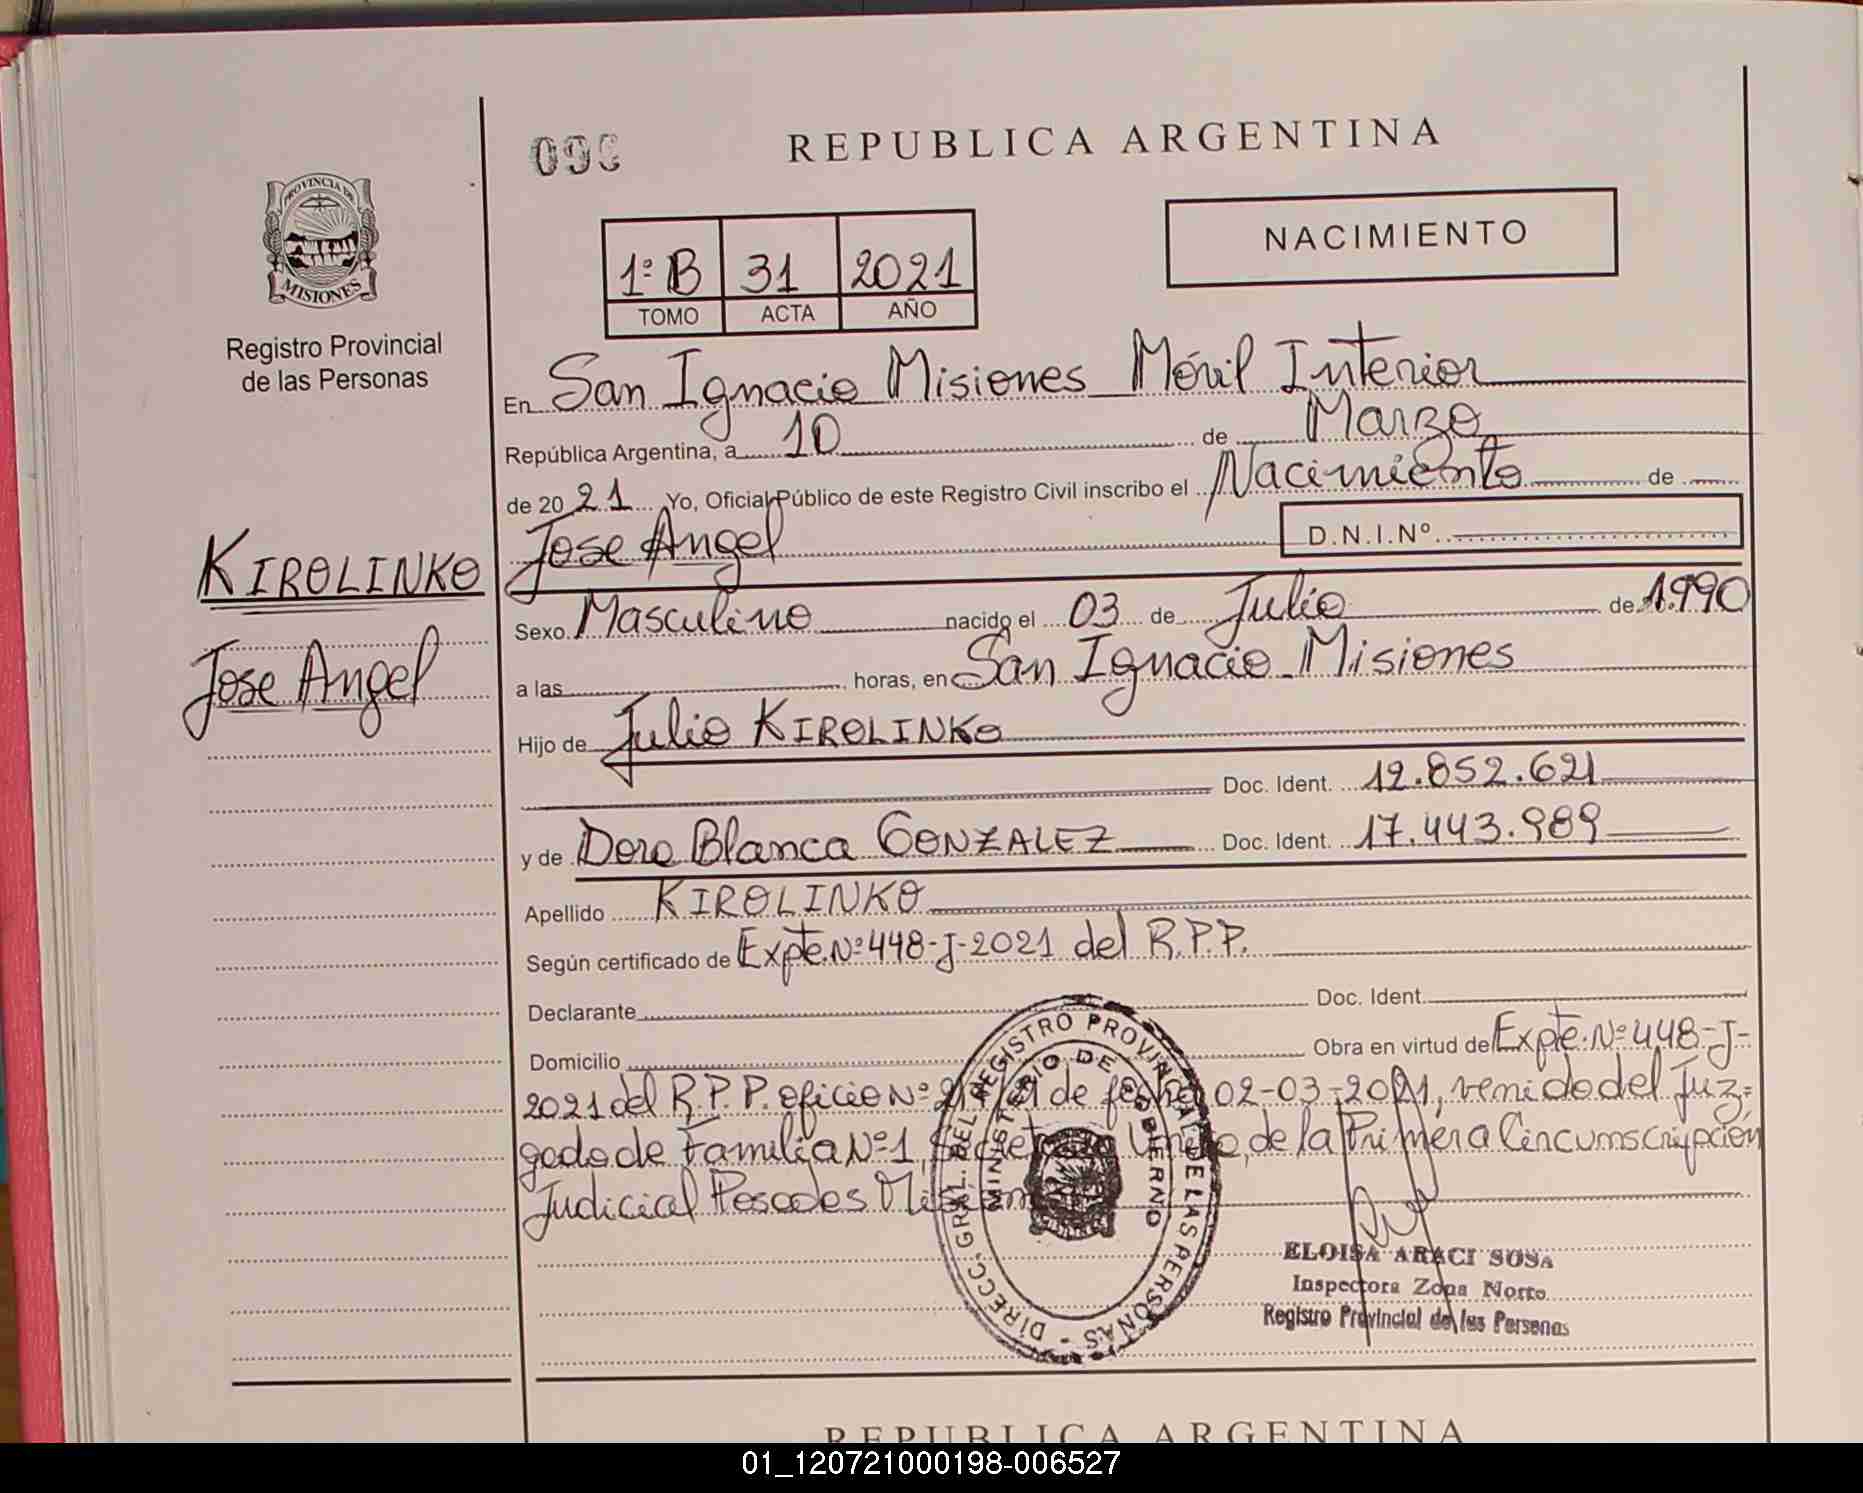 REPUBLICA ARGENTINA
NACIMIENTO
1º B 31 2021
TOMO ACTA AÑO
PROVINCIA DE
MISIONES
Registro Provincial
de las Personas
En San Ignacio Misiones Móvil Interior
República Argentina, a 10 de Marzo
de 20 21 Yo, Oficial Público de este Registro Civil inscribo el Nacimiento de
KIROLINKO Jose Angel D.N.I.Nº
Sexo Masculino nacido el 03 de Julio de 1.990
Jose Angel
a las horas, en San Ignacio Misiones
Hijo de Julio KIROLINKO
Doc. Ident. 12.852.621
y de Dora Blanca GONZALEZ Doc. Ident. 17.443.989
Apellido KIROLINKO
Según certificado de Expte.Nº448-J-2021 del R.P.P.
Declarante Doc. Ident.
Domicilio Obra en virtud de Expte.Nº448-J-
2021 del R.P.P. oficio Nº de fecha 02-03-2021, venido del Juz=
gado de Familia Nº1, Secretaria Unica, de la Primera Circumscripción
Judicial Posadas Misiones
DIRECC. GRAL. DEL REGISTRO PROVINCIAL DE LAS PERSONAS -
MINISTERIO DE GOBIERNO
ELOISA ARACI SOSA
Inspectora Zona Norte
Registro Provincial de las Personas
REPUBLICA ARGENTINA
01_120721000198-006527